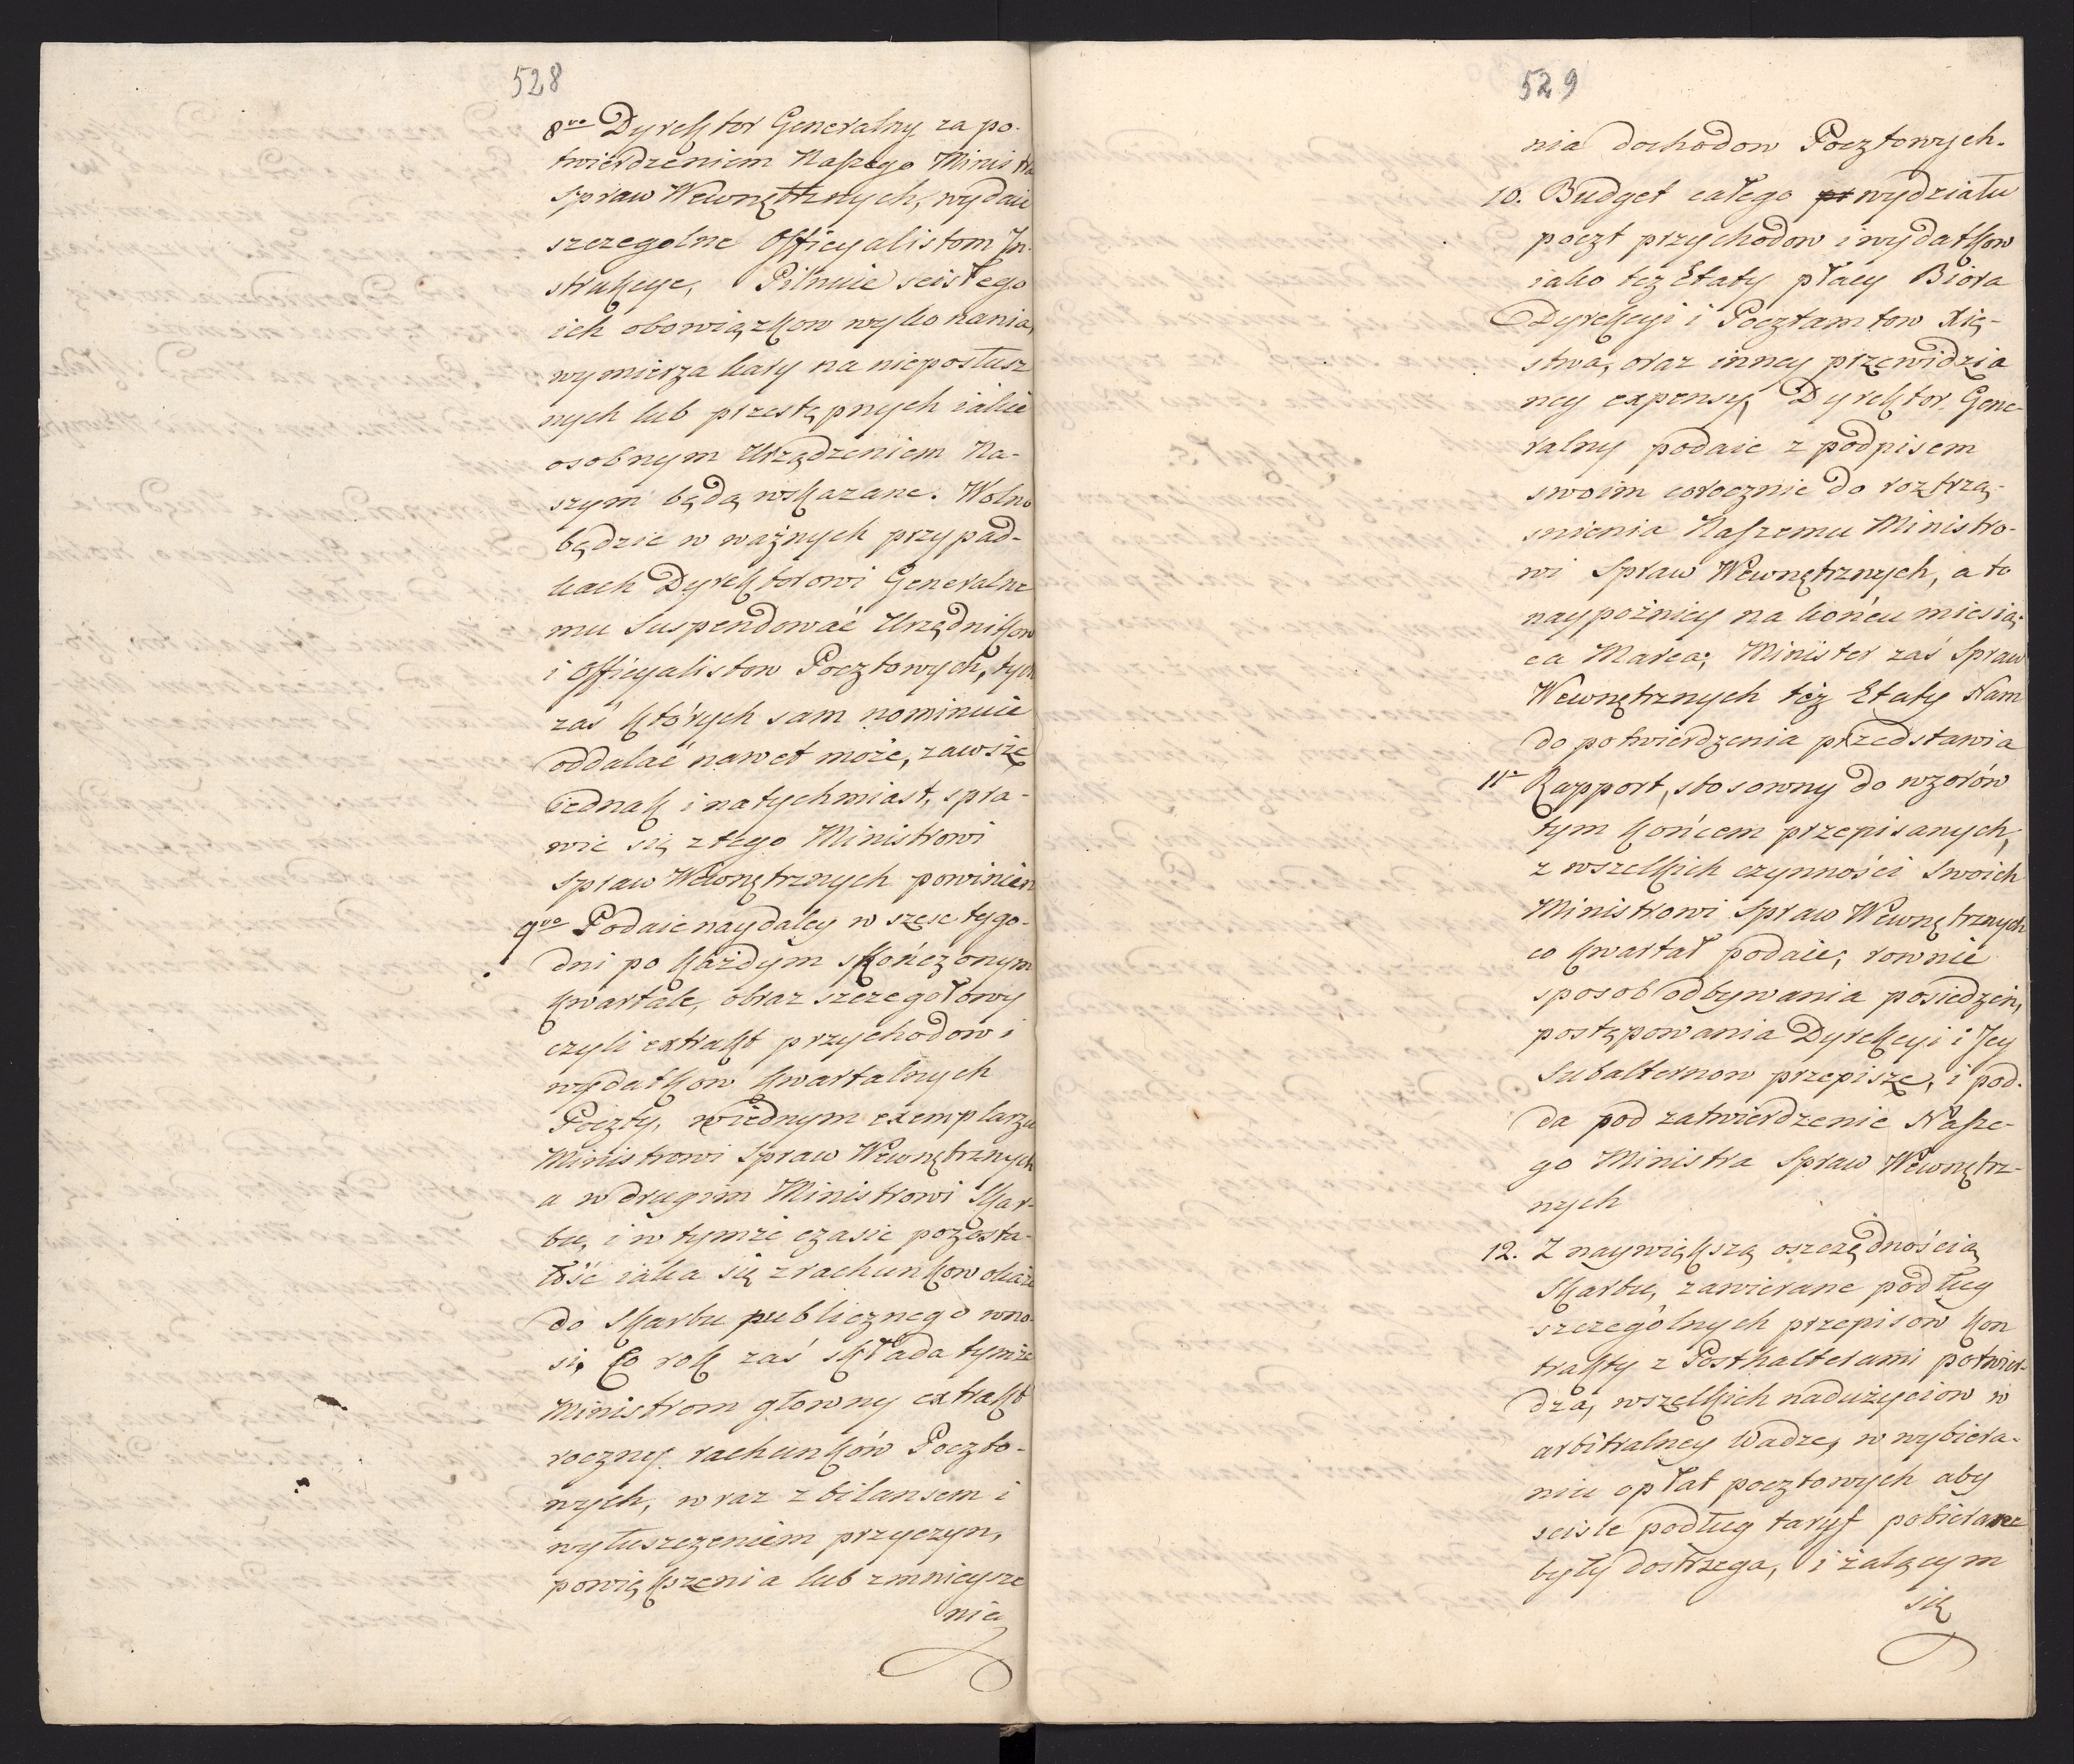 528
8vo Dyrektor Generalny za po-
twierdzeniem Naszego Ministra
Spraw Wewnętrznych, wydaie
szczegolne Officyalistom In-
strukcye, Pilnuie scisłego
ich obowiązkow wykonania,
wymierza kary na nieposłusz
nych lub przestępnych iakie
osobnym Urządzeniem Na-
szym będą wskazane. Wolno
będzie w ważnych przypad-
kach Dyrektorowi Generalne
mu Suspendować Urzędnikow
i Officyalistow Pocztowych, tych
zaś których sam nominuie
oddalać nawet może, zawsze
iednak i natychmiast, spra-
wić się z tego Ministrowi
Spraw Wewnętrznych powinien
9vo Podaie naydaley w szesc tygo-
dni po każdym skończonym
kwartale, obraz szczegołowy
czyli extrakt przychodow i
wydatkow kwartalnych
Poczty, w iednym exemplarzu
Ministrowi Spraw Wewnętrznych
a w drugim Ministrowi Skar-
bu, i w tymże czasie pozosta-
łość iaka się z rachunkow okaże
do Skarbu publicznego wno-
si, Co rok zaś składa tymże
Ministrom głowny extrakt
roczny rachunków Poczto-
wych, wraz z bilansem i
wyłuszczeniem przyczyn,
powiększenia lub zmnieysze
nia
529
nia dochodow Pocztowych.
10. Budget całego pr wydziału
poczt przychodow i wydatkow
iako też Etaty płacy Biora
Dyrekcyi i Pocztamtow Xię-
stwa, oraz inney przewidzia
ney expensy, Dyrektor Gene-
ralny podaie z podpisem
swoim corocznie do roztrzą-
snienia Naszemu Ministro-
wi Spraw Wewnętrznych, a to
naypożniey na końcu miesią-
ca Marca; Minister zaś Spraw
Wewnętrznych też Etaty Nam
do potwierdzenia przedstawia
11o Rapport, stosowny do wzorów
tym końcem przepisanych,
z wszelkich czynności swoich
Ministrowi Spraw Wewnętrznych
co kwartał podaie; rownie
sposob odbywania posiedzeń,
postępowania Dyrekcyi i Jey
Subalternow przepisze, i pod-
da pod zatwierdzenie Nasze-
go Ministra Spraw Wewnętrz-
nych
12. Z naywiększą oszczędnością
Skarbu, zawierane podług
szczególnych przepisow kon
trakty z Posthalterami potwier-
dza, wszelkich nadużyciow w
arbitralney Wadze, w wybiera-
niu opłat pocztowych aby
scisle podług taryf pobierane
były dostrzega, i żalącym
się